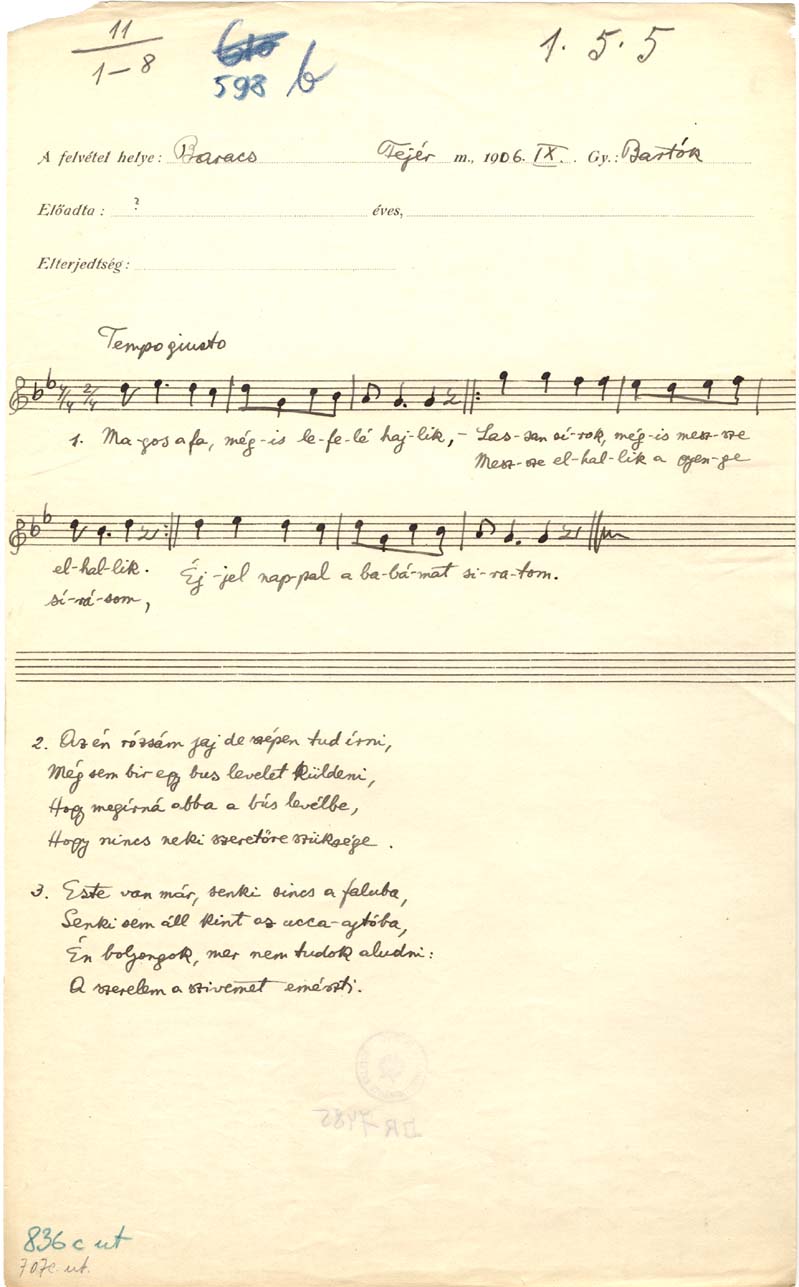 11
1–8
598 b
1. 5. 5
A felvétel helye: Baracs Fejér m., 1906. IX. Gy.: Bartók
Előadta: ? éves,
Elterjedtség:
Tempo giusto
4/4 2/4
1. Ma-gos a fa, még-is le-fe-lé haj-lik, – Las-san sí-rok, még-is mesz-sze
Mesz-sze el-hal-lik a gyen-ge
el-hal-lik. Éj-jel nap-pal a ba-bá-mat si-ra-tom.
sí-rá-som,
2. Az én rózsám jaj de szépen tud írni,
Még sem bir egy bus levelet küldeni,
Hogy megírná abba a bús levélbe,
Hogy nincs neki szeretőre szüksége.
3. Este van már, senki sincs a faluba,
Senki sem áll kint az ucca-ajtóba,
Én boljongok, mer nem tudok aludni:
A szerelem a szivemet emészti.
DR-7485
836 c ut
707c. ut.